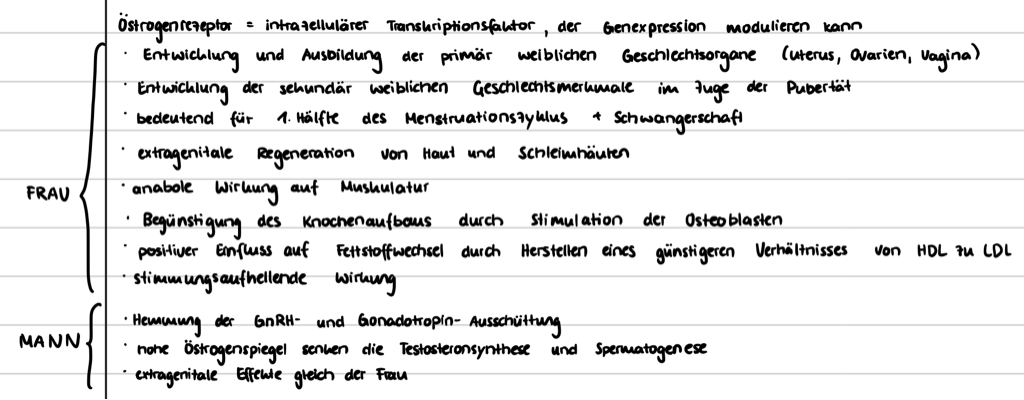 Östrogenrezeptor = intrazellulärer Transkriptionsfaktor, der Genexpression modulieren kann
FRAU
· Entwicklung und Ausbildung der primär weiblichen Geschlechtsorgane (Uterus, Ovarien, Vagina)
· Entwicklung der sekundär weiblichen Geschlechtsmerkmale im Zuge der Pubertät
· bedeutend für 1. Hälfte des Menstruationszyklus + Schwangerschaft
· extragenitale Regeneration von Haut und Schleimhäuten
· anabole Wirkung auf Muskulatur
· Begünstigung des Knochenaufbaus durch Stimulation der Osteoblasten
· positiver Einfluss auf Fettstoffwechsel durch Herstellen eines günstigeren Verhältnisses von HDL zu LDL
· stimmungsaufhellende Wirkung
MANN
· Hemmung der GnRH- und Gonadotropin- Ausschüttung
· hohe Östrogenspiegel senken die Testosteronsynthese und Spermatogenese
· extragenitale Effekte gleich der Frau